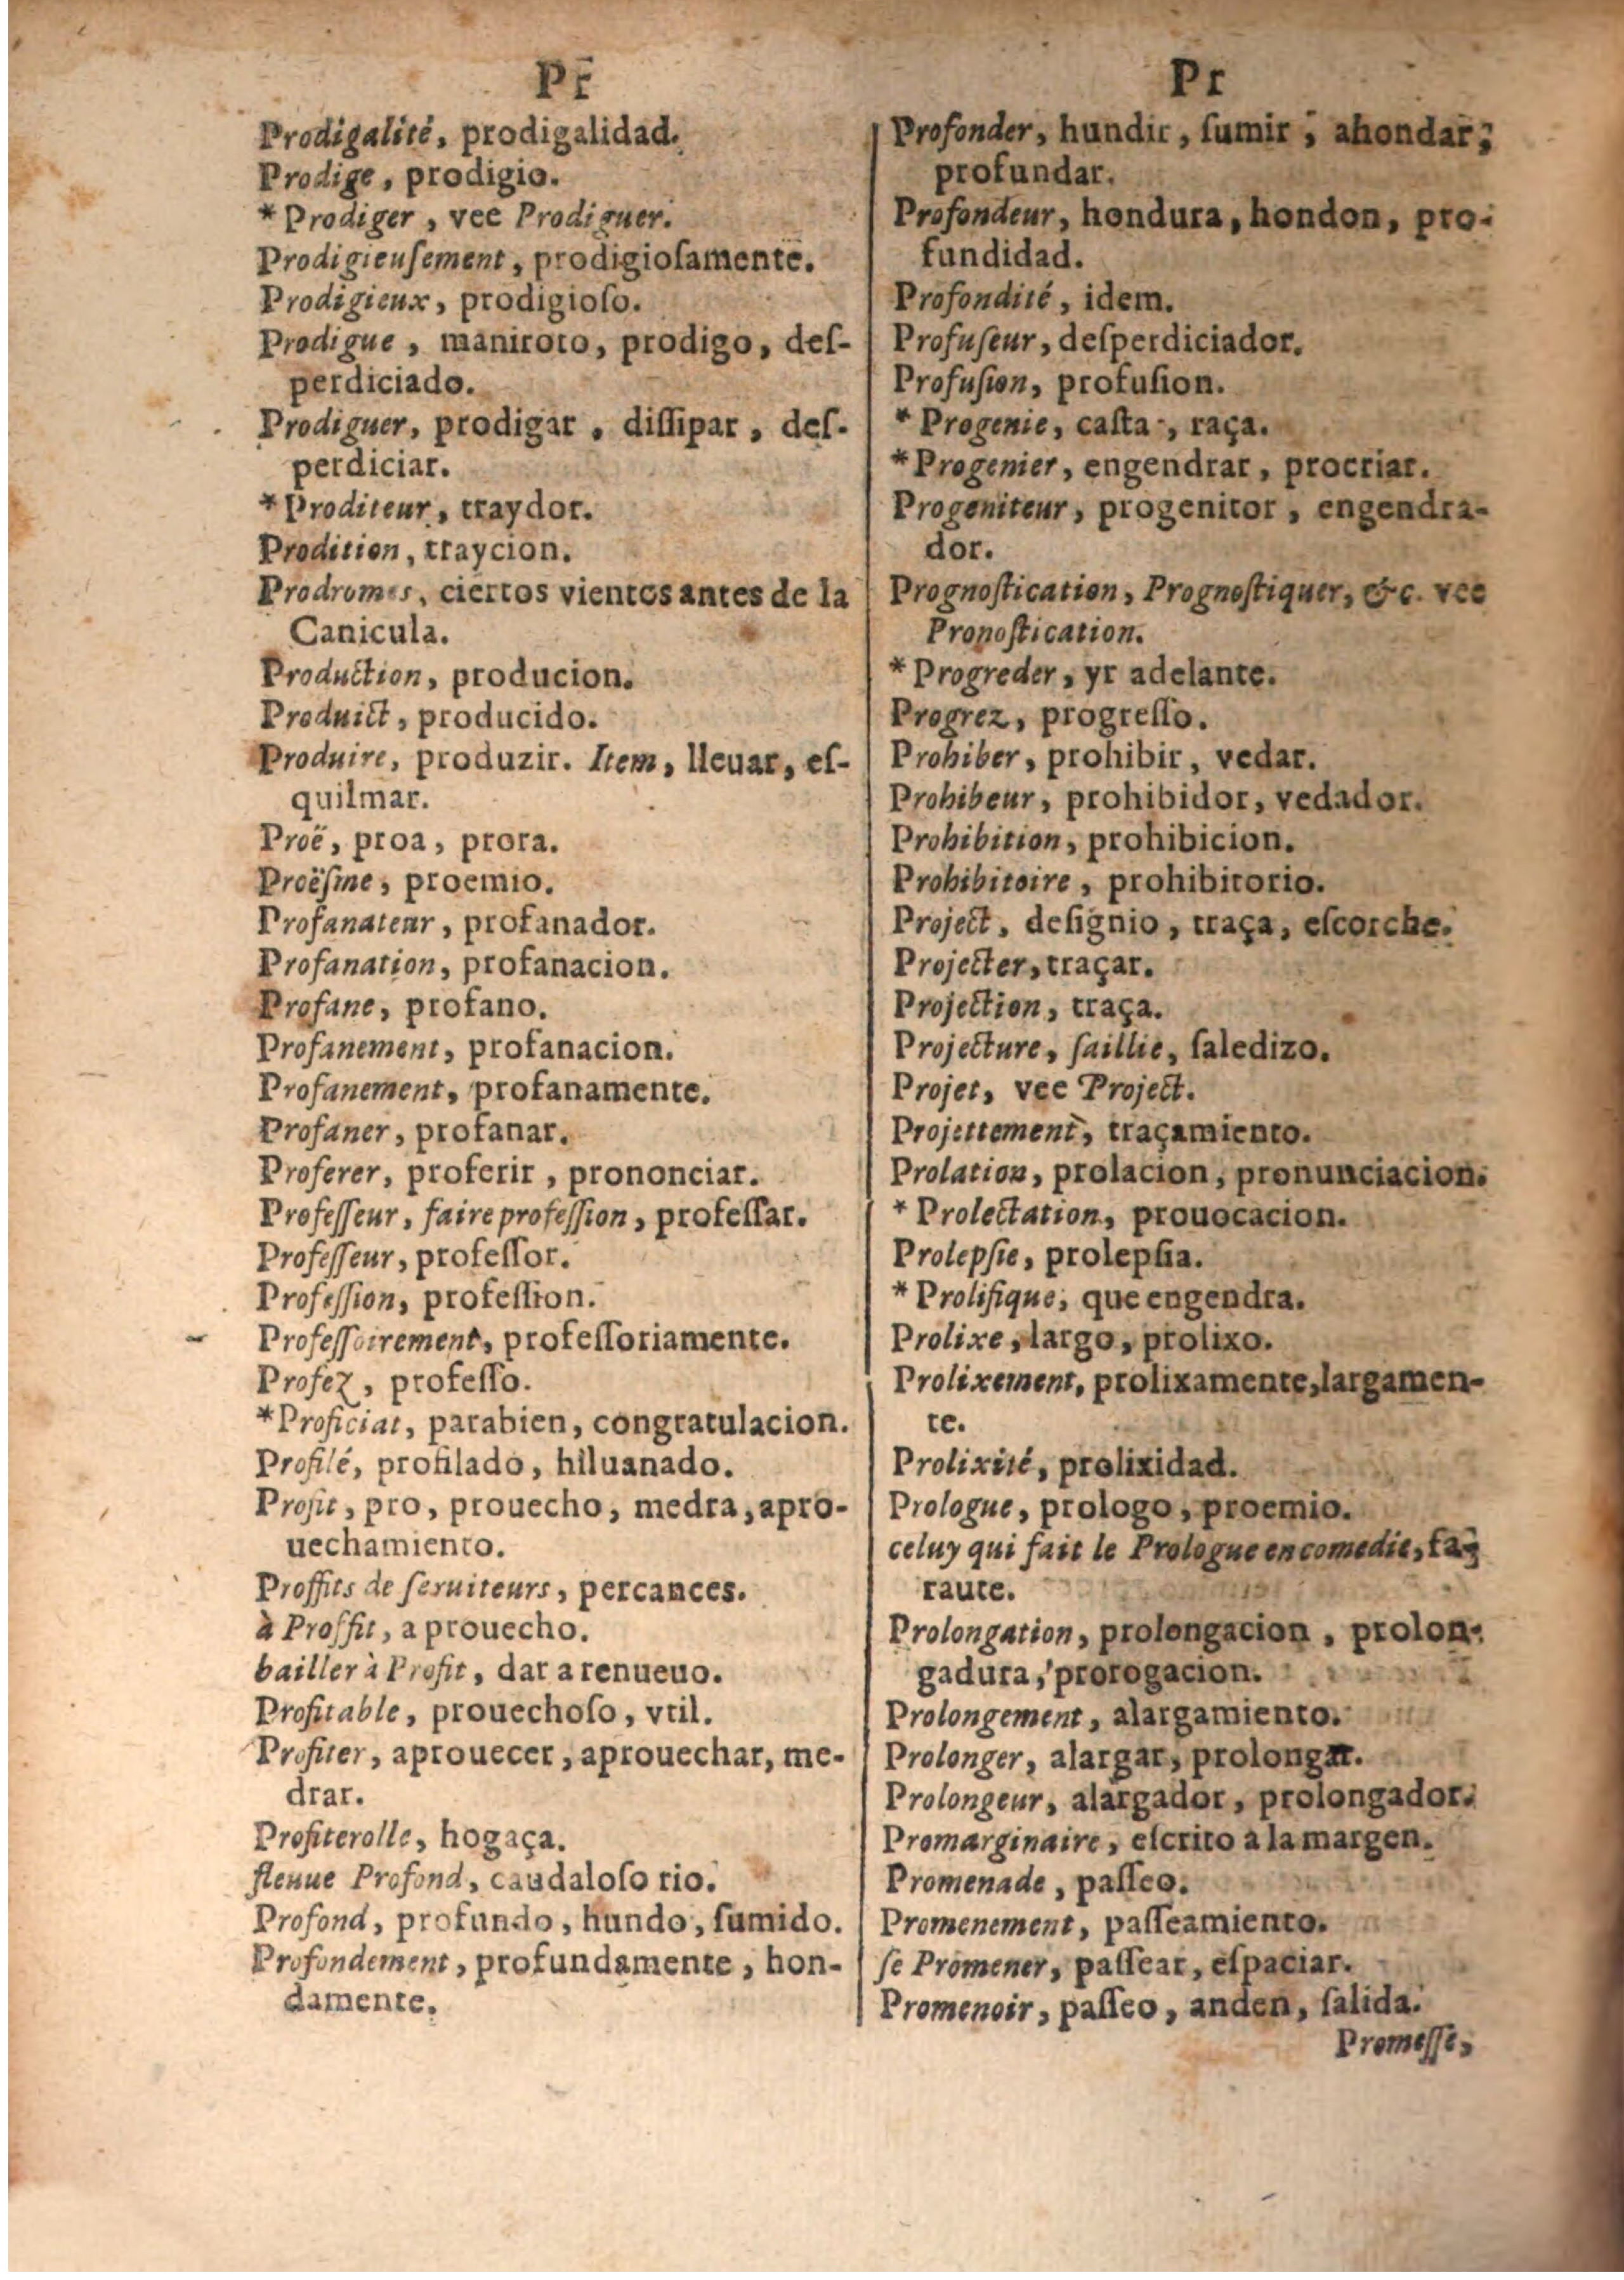 Pr
Prodigalité, prodigalidad.
Prodige, prodigio.
*Prodiger, vee Prodiguer.
Prodigieuſement, prodigioſamente.
Prodigieux, prodigioſo.
Prodigue, maniroto, prodigo, deſ-
perdiciado.
Prodiguer, prodigar, diſſipar, deſ-
perdiciar.
*Proditeur, traydor.
Prodition, traycion.
Prodromes, ciertos vientos antes de la
Canicula.
Production, producion.
Produict, producido.
Produire, produzir. Item, lleuar, eſ-
quilmar.
Proë, proa, prora.
Proëſme, proemio.
Profanateur, profanador.
Profanation, profanacion.
Profane, profano.
Profanement, profanacion.
Profanement, profanamente.
Profaner, profanar.
Proferer, proferir, prononciar.
Profeſſeur, faire profeſſion, profeſſar.
Profeſſeur, profeſſor.
Profeſſion, profeſſion.
Profeſſoirement, profeſſoriamente.
Profez, profeſſo.
*Proficiat, parabien, congratulacion.
Profilé, profilado, hiluanado.
Profit, pro, prouecho, medra, apro-
uechamiento.
Proffits de ſeruiteurs, percances.
à Proffit, a prouecho.
bailler à Profit, dar a renueuo.
Profitable, prouechoſo, vtil.
Profiter, aprouecer, aprouechar, me-
drar.
Profiterolle, hogaça.
fleuue Profond, caudaloſo rio.
Profond, profundo, hundo, ſumido.
Profondement, profundamente, hon-
damente.
Pr
Profonder, hundir, ſumir, ahondar,
profundar.
Profondeur, hondura, hondon, pro-
fundidad.
Profondité, idem.
Profuſeur, deſperdiciador.
Profuſion, profuſion.
*Progenie, caſta, raça.
*Progenier, engendrar, procriar.
Progeniteur, progenitor, engendra-
dor.
Prognoſtication, Prognoſtiquer, &c. vee
Pronoſtication.
*Progreder, yr adelante.
Progrez, progreſſo.
Prohiber, prohibir, vedar.
Prohibeur, prohibidor, vedador.
Prohibition, prohibicion.
Prohibitoire, prohibitorio.
Project, deſignio, traça, eſcorche.
Projecter, traçar.
Projection, traça.
Projecture, ſaillie, ſaledizo.
Projet, vee Project.
Projettement, traçamiento.
Prolation, prolacion, pronunciacion.
*Prolectation, prouocacion.
Prolepſie, prolepſia.
*Prolifique, que engendra.
Prolixe, largo, prolixo.
Prolixement, prolixamente, largamen-
te.
Prolixité, prolixidad.
Prologue, prologo, proemio.
celuy qui fait le Prologue en comedie, fa-
raute.
Prolongation, prolongacion, prolon-
gadura, prorogacion.
Prolongement, alargamiento.
Prolonger, alargar, prolongar.
Prolongeur, alargador, prolongador.
Promarginaire, eſcrito a la margen.
Promenade, paſſeo.
Promenement, paſſeamiento.
ſe Promener, paſſear, eſpaciar.
Promenoir, paſſeo, anden, ſalida.
Promeſſe,